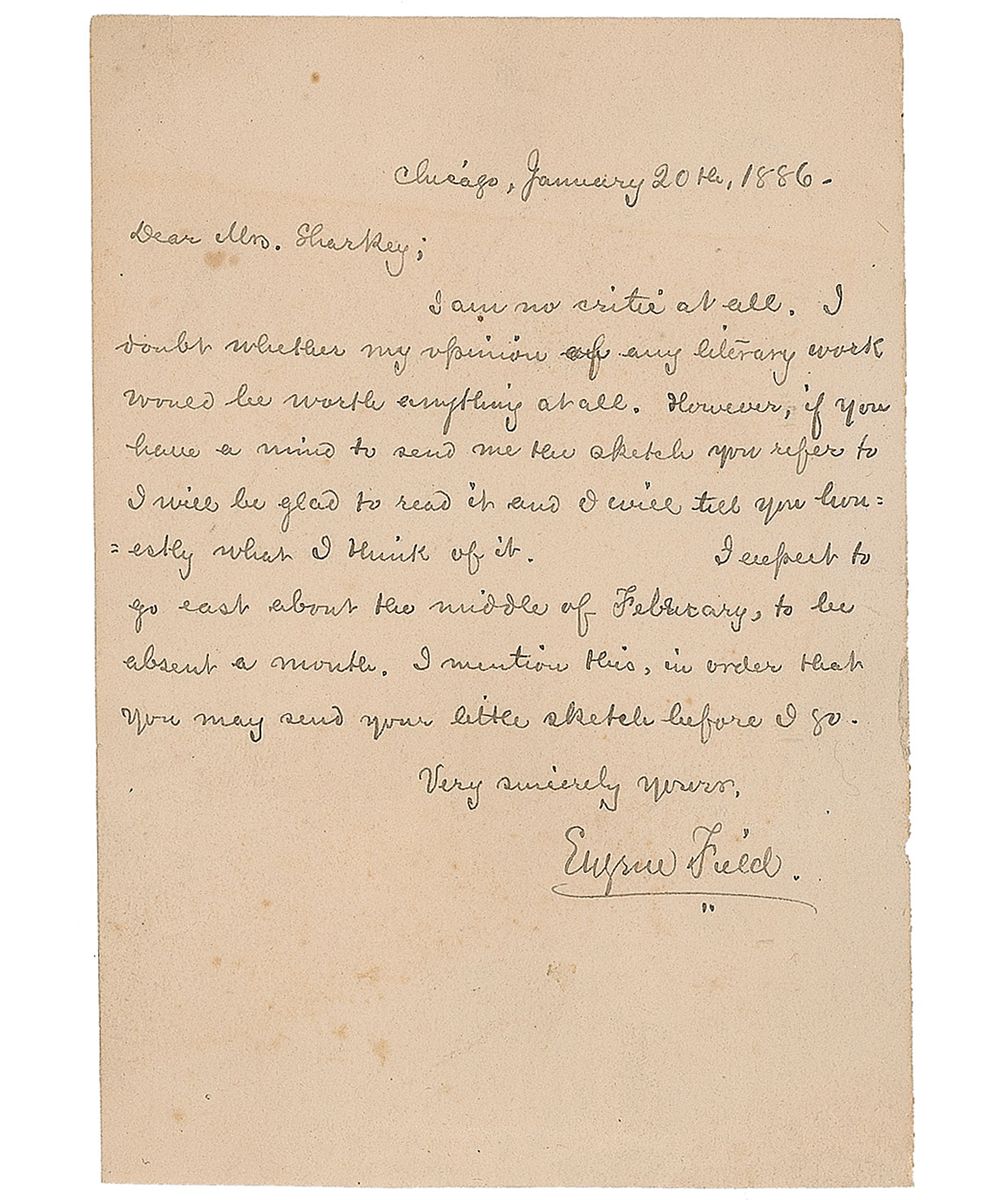 Chicago, January 20th, 1886.
Dear Mrs. Sharkey;
I am no critic at all. I
doubt whether my opinion of any literary work
would be worth anything at all. However, if you
have a mind to send me the sketch you refer to
I will be glad to read it and I will tell you hon=
=estly what I think of it. I expect to
go east about the middle of February, to be
absent a month. I mention this, in order that
you may send your little sketch before I go.
Very sincerely yours,
Eugene Field.